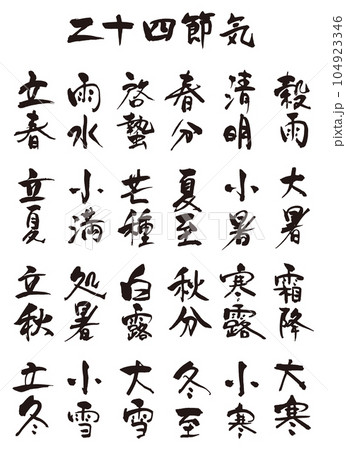 二十四節気
立春 雨水 啓蟄 春分 清明 穀雨
立夏 小満 芒種 夏至 小暑 大暑
立秋 処暑 白露 秋分 寒露 霜降
立冬 小雪 大雪 冬至 小寒 大寒
PIXTA
104923346